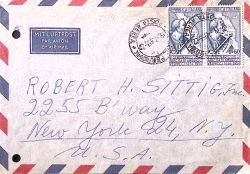 MIT LUFTPOST
PAR AVION
BY AIR MAIL
ROBERT H. SITTIG, Esq.
2255 B'way,
New York 24, N.Y.
U.S.A.